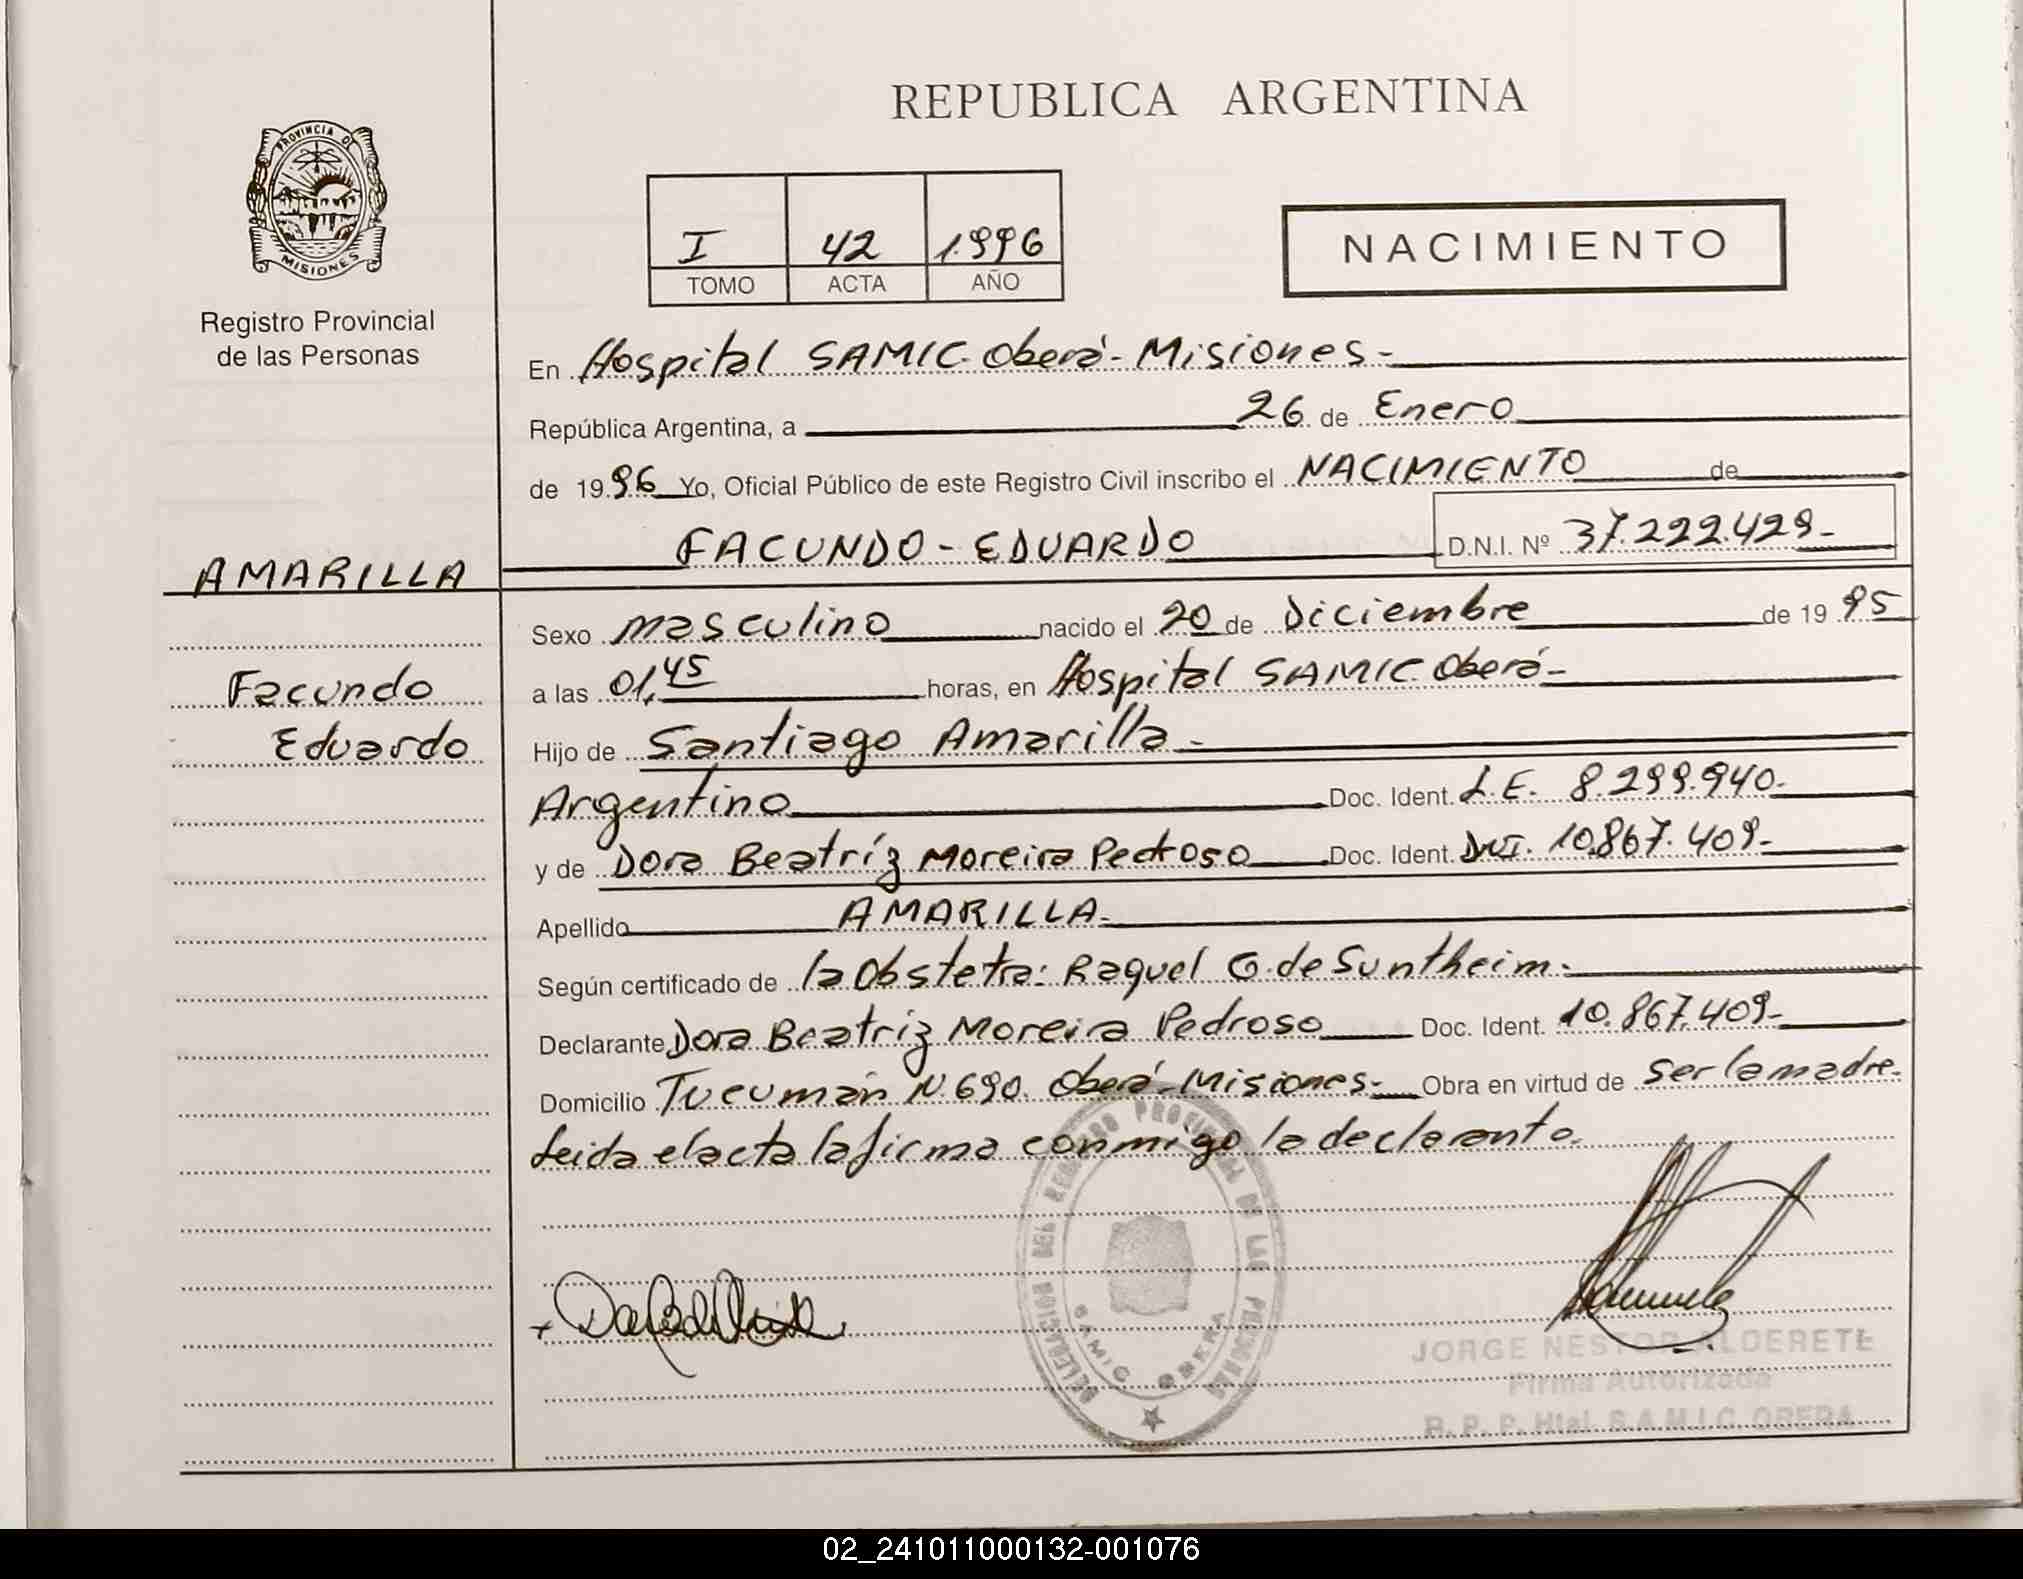 REPUBLICA ARGENTINA
PROVINCIA DE
MISIONES
Registro Provincial
de las Personas
I 42 1.996
TOMO ACTA AÑO
NACIMIENTO
En Hospital SAMIC. Oberá - Misiones.-
República Argentina, a 26 de Enero
de 1996 Yo, Oficial Público de este Registro Civil inscribo el NACIMIENTO de
FACUNDO - EDUARDO D.N.I. Nº 37.222.429.-
AMARILLA
Facundo
Eduardo
Sexo masculino nacido el 20 de Diciembre de 1995
a las 01,45 horas, en Hospital SAMIC. Oberá-
Hijo de Santiago Amarilla.-
Argentino Doc. Ident. L.E. 8.299.940.-
y de Dora Beatríz Moreira Pedroso Doc. Ident. DNI. 10.867.409.-
Apellido AMARILLA.-
Según certificado de la Obstetra: Raquel G. de Suntheim.-
Declarante Dora Beatríz Moreira Pedroso Doc. Ident. 10.867.409.-
Domicilio Tucumán N. 690. Oberá - Misiones.- Obra en virtud de ser la madre.
Leida el acta la firma conmigo la declarante.
DELEGACION DEL REGISTRO PROVINCIAL DE LAS PERSONAS
SAMIC OBERA
JORGE NESTOR ALDERETE
Firma Autorizada
R. P. P. Htal. S.A.M.I.C. OBERA
02_241011000132-001076